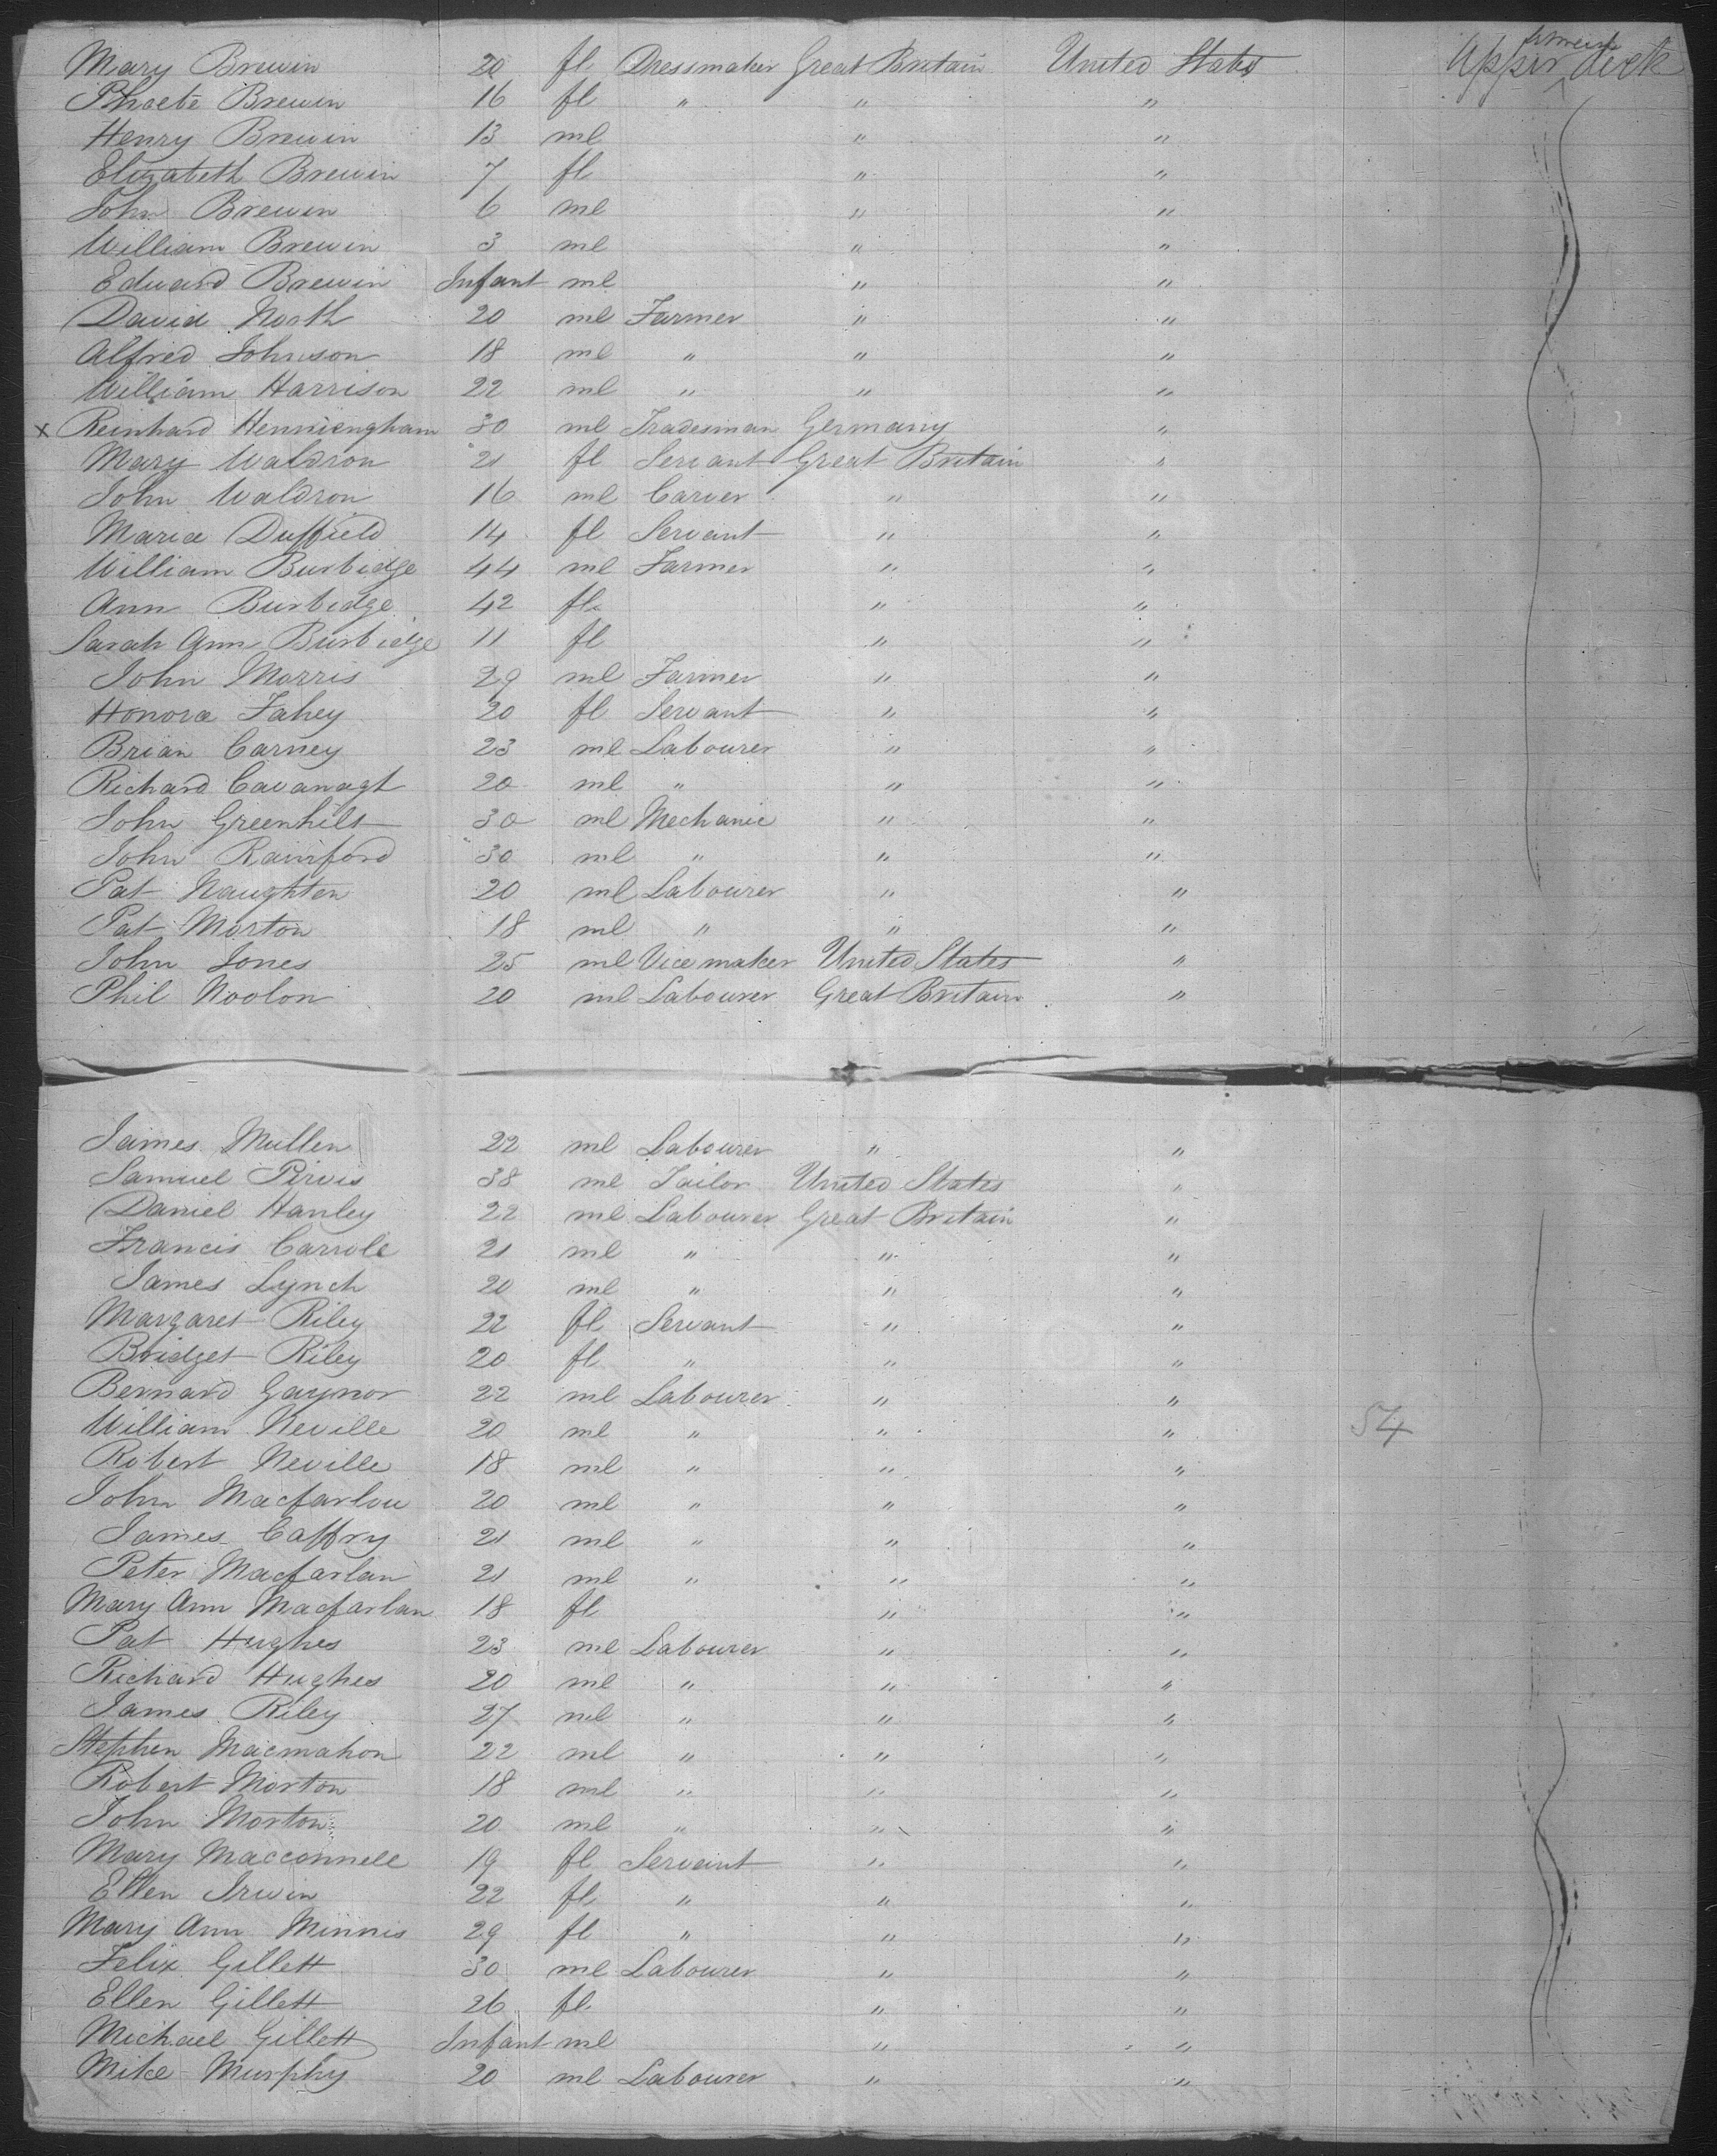 Mary Brewin 20 fl Dressmaker Great Britain United States Upper deck
Phoebe Brewin 16 fl " " "
Henry Brewin 13 ml " "
Elizabeth Brewin 7 fl " "
John Brewin 6 ml " "
William Brewin 3 ml " "
Edward Brewin Infant ml " "
David North 20 ml Farmer " "
Alfred Johnson 18 ml " " "
William Harrison 22 ml " " "
x Reinhard Henniengham 30 ml Tradesman Germany "
Mary Waldron 21 fl Servant Great Britain "
John Waldron 16 ml Carver " "
Maria Duffield 14 fl Servant " "
William Burbidge 44 ml Farmer " "
Ann Burbidge 42 fl " "
Sarah Ann Burbidge 11 fl " "
John Morris 29 ml Farmer " "
Honora Fahey 20 fl Servant " "
Brian Carney 23 ml Labourer " "
Richard Cavanagh 20 ml " " "
John Greenhill 30 ml Mechanic " "
John Rainford 30 ml " " "
Pat Naughten 20 ml Labourer " "
Pat Morton 18 ml " " "
John Jones 25 ml Vice maker United States "
Phil Noolon 20 ml Labourer Great Britain "
James Mullen 22 ml Labourer " "
Samuel Pirvis 38 ml Tailor United States "
Daniel Hanley 22 ml Labourer Great Britain "
Francis Carroll 21 ml " " "
James Lynch 20 ml " " "
Margaret Riley 22 fl Servant " "
Bridget Riley 20 fl " " "
Bernard Gaynor 22 ml Labourer " "
William Neville 20 ml " " " 54
Robert Neville 18 ml " " "
John Macfarlou 20 ml " " "
James Caffry 21 ml " " "
Peter Macfarlan 21 ml " " "
Mary Ann Macfarlan 18 fl " "
Pat Hughes 23 ml Labourer " "
Richard Hughes 20 ml " " "
James Riley 27 ml " " "
Stephen Macmahon 22 ml " " "
Robert Morton 18 ml " " "
John Morton 20 ml " " "
Mary Macconnell 19 fl Servant " "
Ellen Irwin 22 fl " " "
Mary Ann Minnis 29 fl " " "
Felix Gillett 30 ml Labourer " "
Ellen Gillett 26 fl " "
Michael Gillett Infant ml " "
Mike Murphy 20 ml Labourer " "